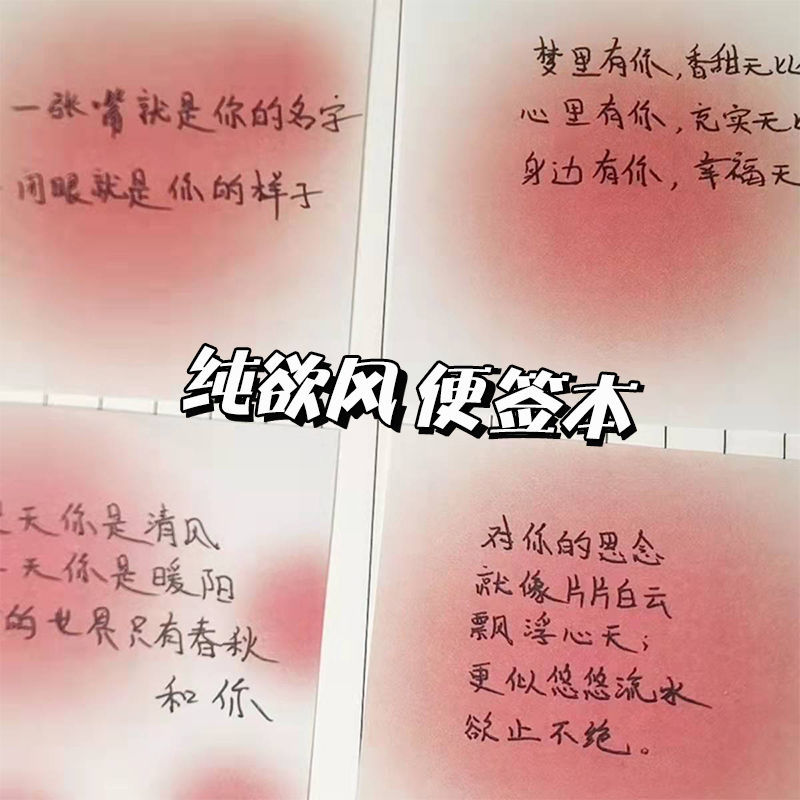 一张嘴就是你的名字
闭眼就是你的样子
梦里有你，香甜无比
心里有你，充实无
身边有你，幸福无
纯欲风 便签本
天你是清风
天你是暖阳
的世界只有春秋
和你
对你的思念
就像片片白云
飘浮心天；
更似悠悠流水
欲止不绝。